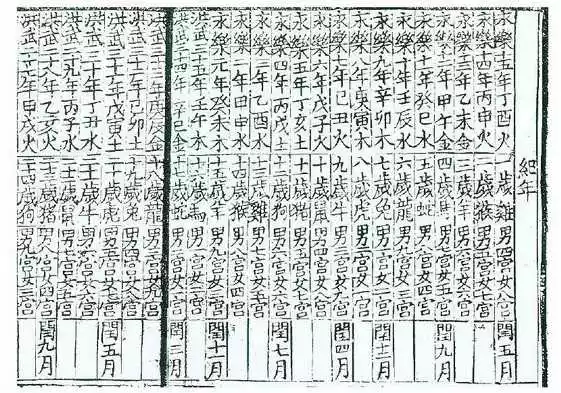 紀年
永樂十五年丁酉火一歲雞男四宮女八宮閏五月
永樂十四年丙申火二歲猴男五宮女七宮
永樂十三年乙未金三歲羊男六宮女六宮
永樂十二年甲午金四歲馬男七宮女五宮閏九月
永樂十一年癸巳水五歲蛇男八宮女四宮
永樂十年壬辰水六歲龍男九宮女三宮
永樂九年辛卯木七歲兔男一宮女二宮閏十二月
永樂八年庚寅木八歲虎男二宮女一宮
永樂七年己丑火九歲牛男三宮女九宮閏四月
永樂六年戊子火十歲鼠男四宮女八宮
永樂五年丁亥土十一歲猪男五宮女七宮
永樂四年丙戌土十二歲狗男六宮女六宮閏七月
永樂三年乙酉水十三歲雞男七宮女五宮
永樂二年甲申水十四歲猴男八宮女四宮
永樂元年癸未木十五歲羊男九宮女三宮閏十一月
洪武三十五年壬午木十六歲馬男一宮女二宮
洪武三十四年辛巳金十七歲蛇男二宮女一宮閏三月
洪武三十三年庚辰金十八歲龍男三宮女九宮
洪武三十二年己卯土十九歲兔男四宮女八宮
洪武三十一年戊寅土二十歲虎男五宮女七宮閏五月
洪武三十年丁丑水二十一歲牛男六宮女六宮
洪武二十九年丙子水二十二歲鼠男七宮女五宮
洪武二十八年乙亥火二十三歲猪男八宮女四宮閏九月
洪武二十七年甲戌火二十四歲狗男九宮女三宮